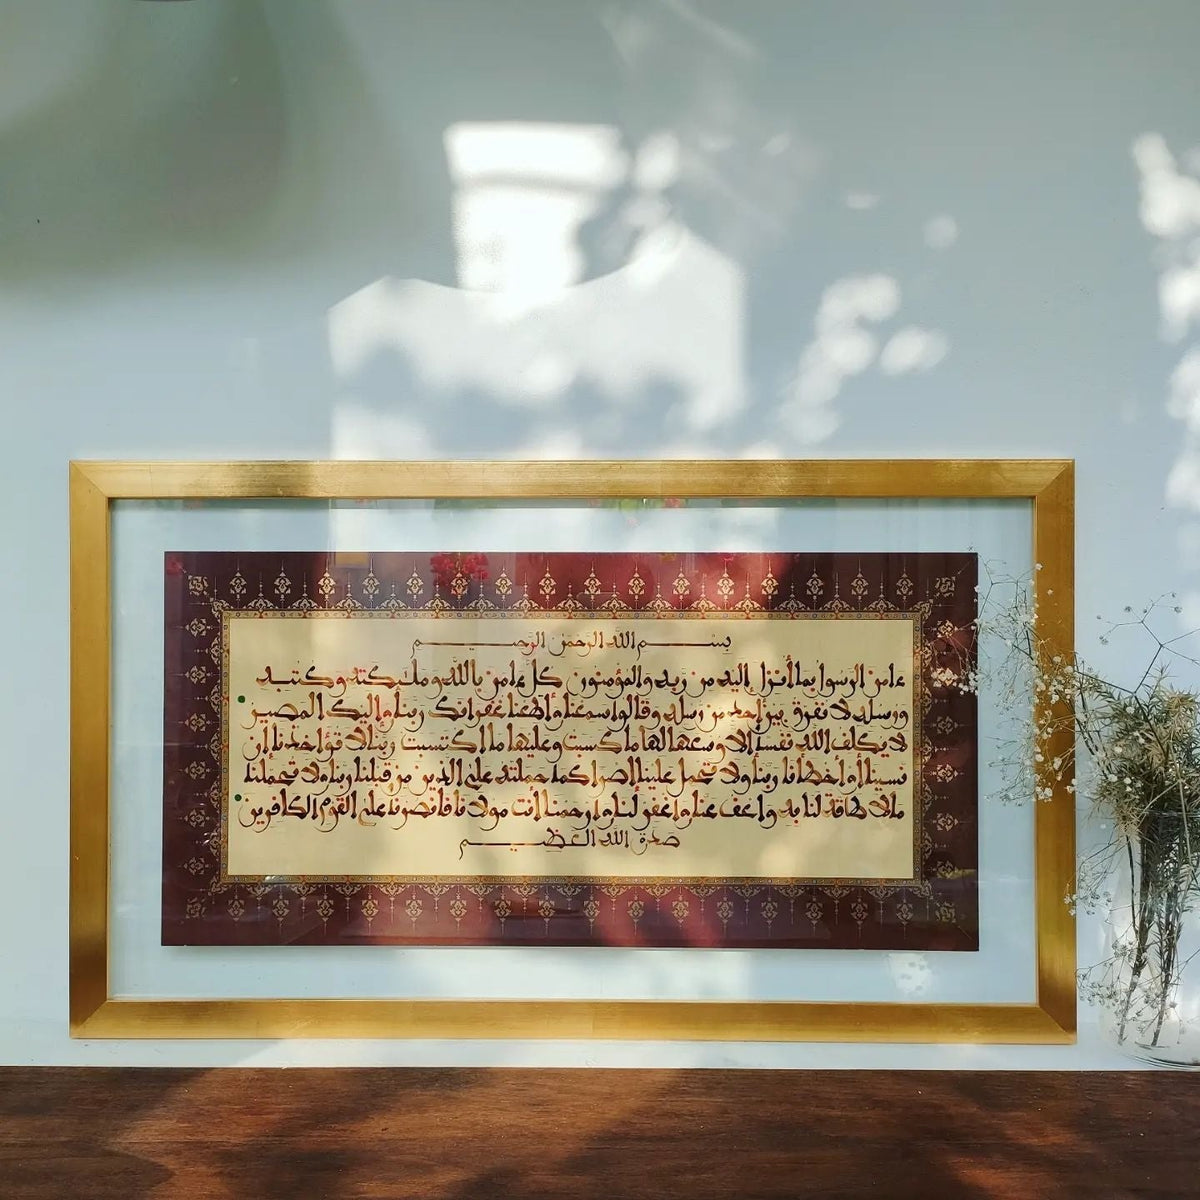 بسم الله الرحمن الرحيم
ءامن الرسول بما أنزل إليه من ربه والمؤمنون كل ءامن بالله وملـٰئكته وكتبه
ورسله لا نفرق بين أحد من رسله وقالوا سمعنا وأطعنا غفرانك ربنا وإليك المصير
لا يكلف الله نفسا إلا وسعها لها ما كسبت وعليها ما اكتسبت ربنا لا تؤاخذنا إن
نسينا أو أخطانا ربنا ولا تحمل علينا إصرا كما حملته على الذين من قبلنا ربنا ولا تحملنا
ما لا طاقة لنا به واعف عنا واغفر لنا وارحمنا أنت مولانا فانصرنا على القوم الكافرين
صدق الله العظيم